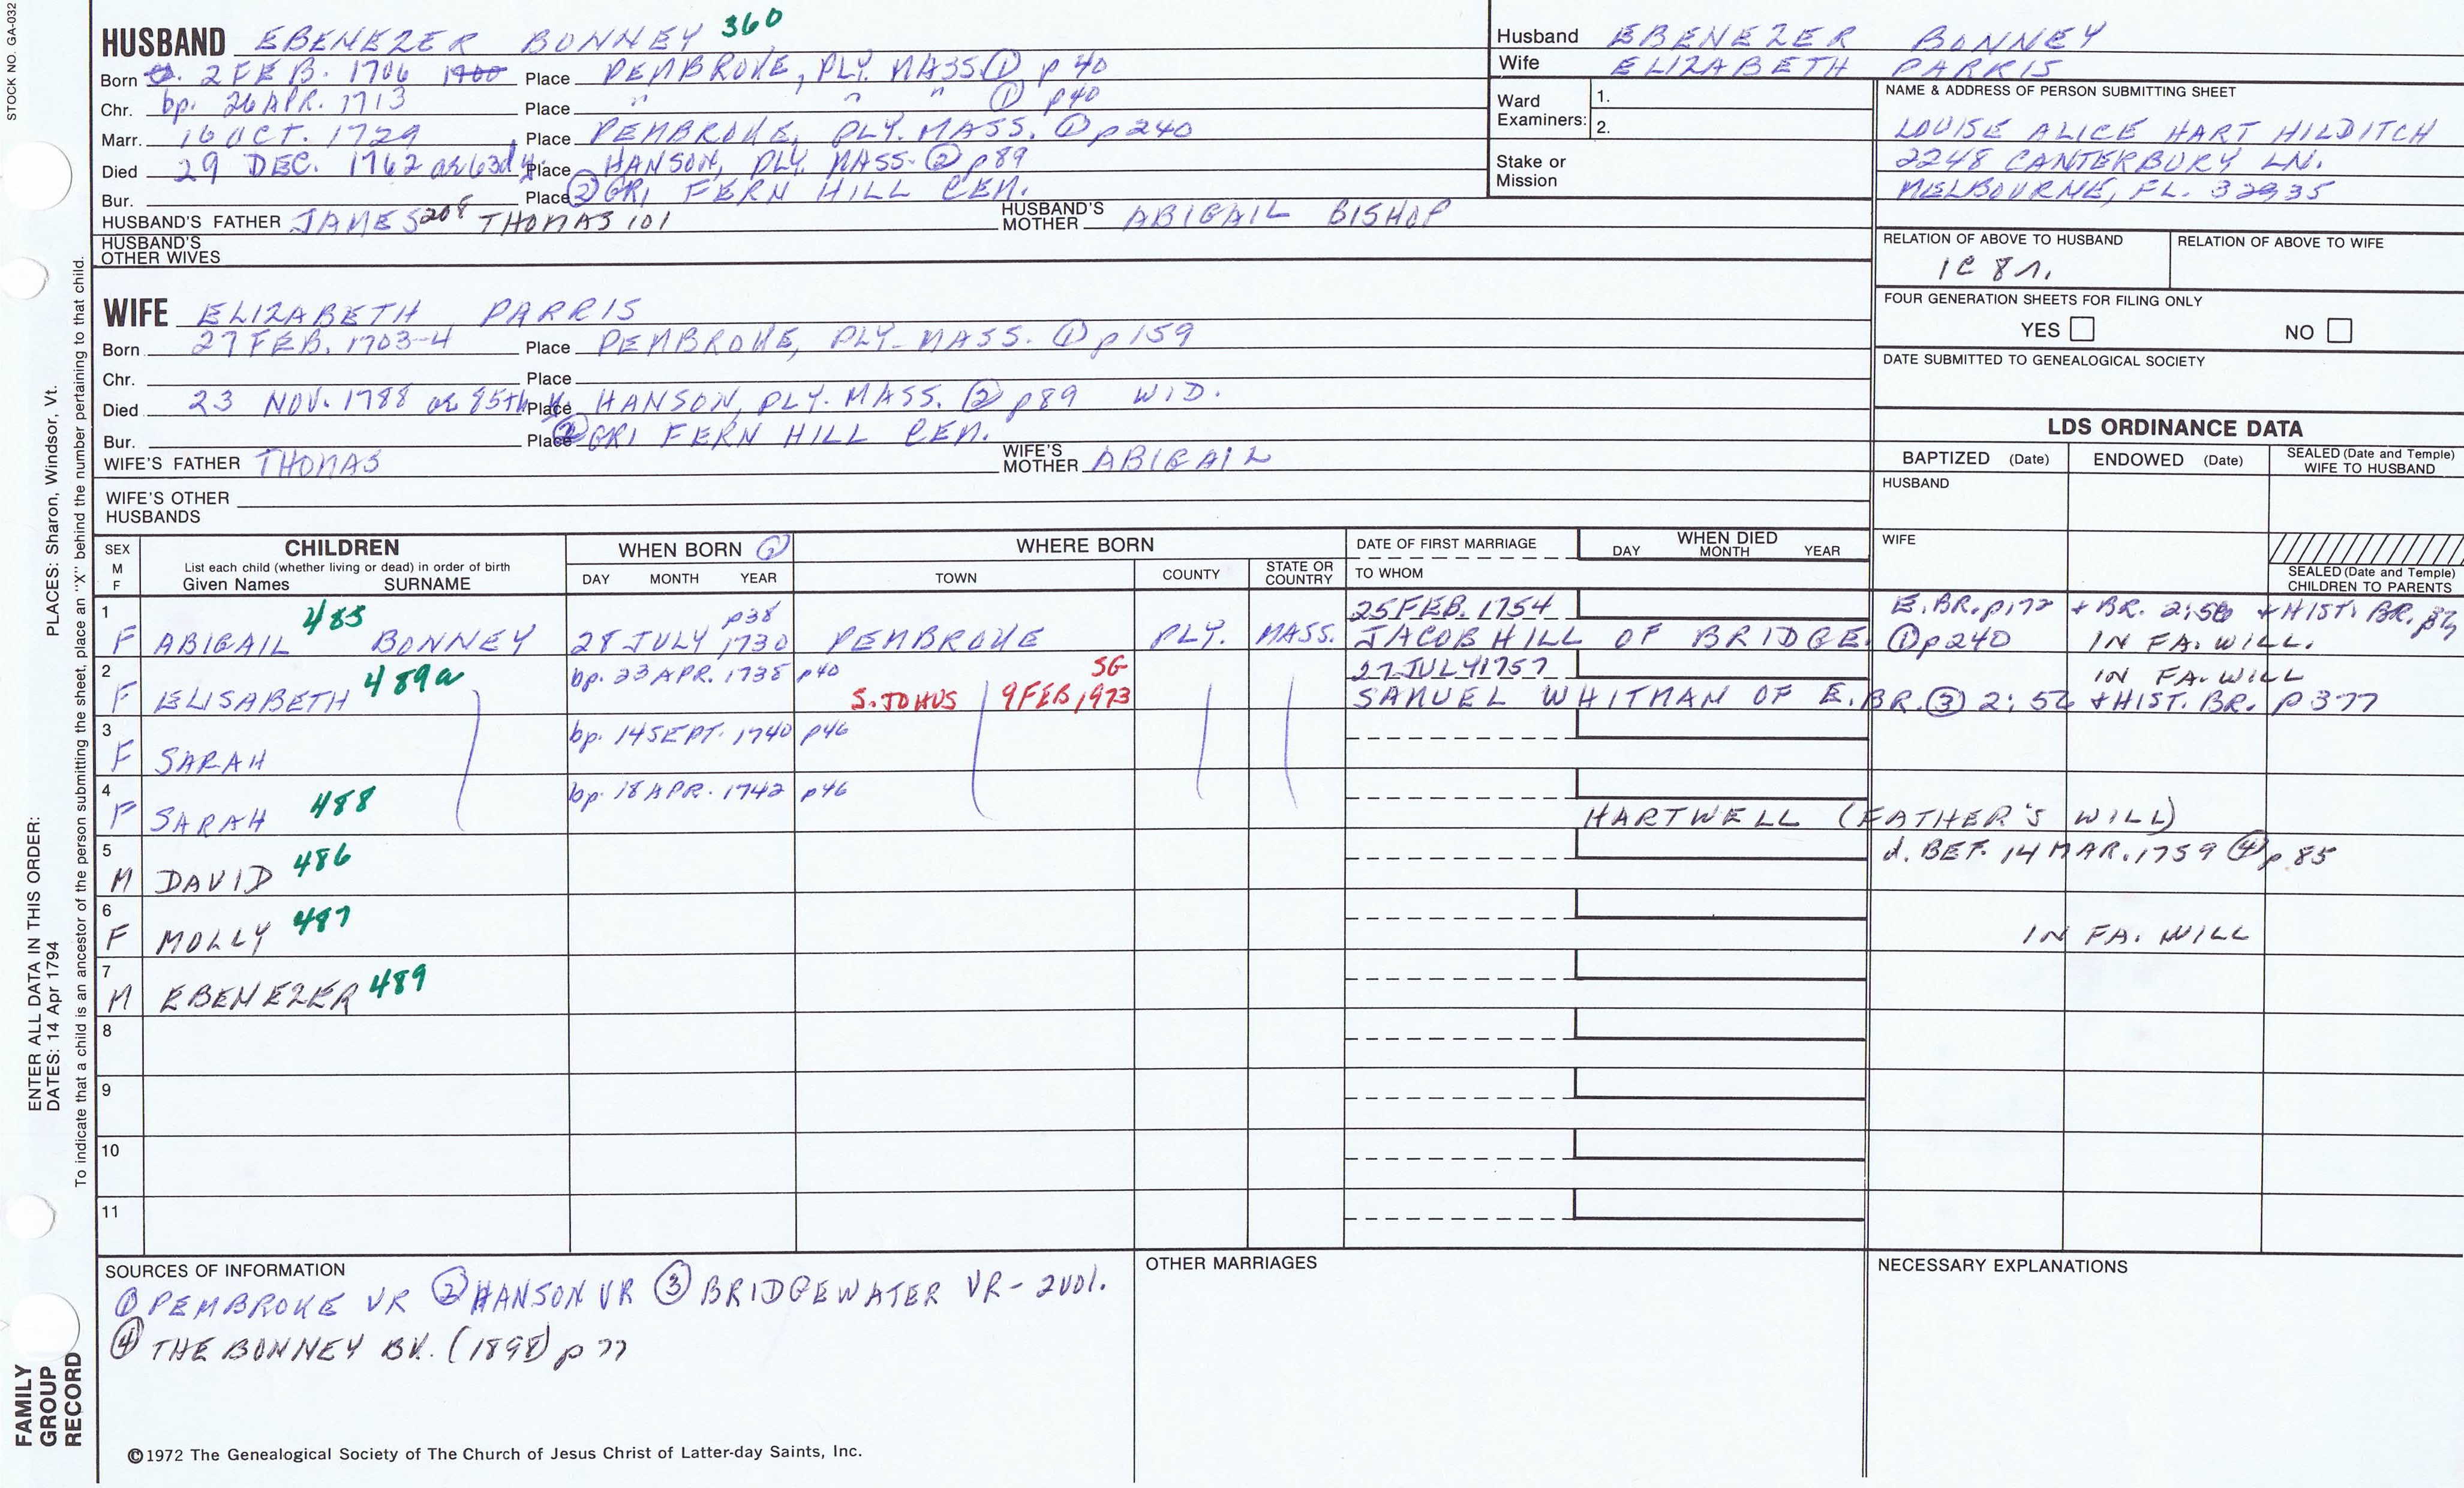 STOCK NO. GA-032
HUSBAND EBENEZER BONNEY 360
Born 2 FEB. 1706 1700 Place PEMBROKE, PLY. MASS. ① p 40
Chr. bp. 26 APR. 1713 Place " " " ① p40
Marr. 16 OCT. 1729 Place PEMBROKE, PLY. MASS. ① p240
Died 29 DEC. 1762 ae 63d y. Place HANSON, PLY. MASS. ② p89
Bur. Place ② GRI FERN HILL CEM.
HUSBAND'S FATHER JAMES 208 THOMAS 101 HUSBAND'S MOTHER ABIGAIL BISHOP
HUSBAND'S OTHER WIVES
WIFE ELIZABETH PARRIS
Born 27 FEB. 1703-4 Place PEMBROKE, PLY. MASS. ① p159
Chr. Place
Died 23 NOV. 1788 ae 85th y. Place HANSON, PLY. MASS. ② p89 WID.
Bur. Place ② GRI FERN HILL CEM.
WIFE'S FATHER THOMAS WIFE'S MOTHER ABIGAIL
WIFE'S OTHER HUSBANDS
Husband EBENEZER BONNEY
Wife ELIZABETH PARRIS
Ward Examiners: 1.
2.
Stake or Mission
NAME & ADDRESS OF PERSON SUBMITTING SHEET
LOUISE ALICE HART HILDITCH
2248 CANTERBURY LN.
MELBOURNE, FL. 32935
RELATION OF ABOVE TO HUSBAND RELATION OF ABOVE TO WIFE
1C 8r.
FOUR GENERATION SHEETS FOR FILING ONLY
YES NO
DATE SUBMITTED TO GENEALOGICAL SOCIETY
LDS ORDINANCE DATA
BAPTIZED (Date) ENDOWED (Date) SEALED (Date and Temple) WIFE TO HUSBAND
HUSBAND
WIFE
SEALED (Date and Temple) CHILDREN TO PARENTS
SEX M F
CHILDREN
List each child (whether living or dead) in order of birth
Given Names SURNAME
WHEN BORN ①
DAY MONTH YEAR
WHERE BORN
TOWN COUNTY STATE OR COUNTRY
DATE OF FIRST MARRIAGE
TO WHOM
WHEN DIED
DAY MONTH YEAR
1 485 p38 25 FEB. 1754 E. BR. p172 + BR. 2:56 + HIST. BR.
F ABIGAIL BONNEY 28 JULY 1730 PEMBROKE PLY. MASS. JACOB HILL OF BRIDGE. ① p240 IN FA. WILL.
2 489a bp. 23 APR. 1738 p40 SG 27 JULY 1757 IN FA. WILL
F ELISABETH S. JOHUS 9 FEB 1973 SAMUEL WHITMAN OF E. BR. ③ 2:56 + HIST. BR. p 377
3 bp. 14 SEPT. 1740 p46
F SARAH
4 488 bp. 18 APR. 1742 p46
F SARAH HARTWELL (FATHER'S WILL)
5 486 d. BEF. 14 MAR. 1759 ④ p 85
M DAVID
6 487
F MOLLY IN FA. WILL
7 489
M EBENEZER
8
9
10
11
SOURCES OF INFORMATION
① PEMBROKE VR ② HANSON VR ③ BRIDGEWATER VR - 2 vol.
④ THE BONNEY BK. (1898) p 77
OTHER MARRIAGES
NECESSARY EXPLANATIONS
©1972 The Genealogical Society of The Church of Jesus Christ of Latter-day Saints, Inc.
FAMILY GROUP RECORD
ENTER ALL DATA IN THIS ORDER:
DATES: 14 Apr 1794
PLACES: Sharon, Windsor, Vt.
To indicate that a child is an ancestor of the person submitting the sheet, place an "X" behind the number pertaining to that child.